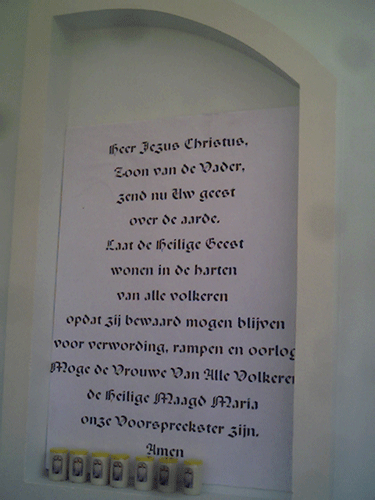 Heer Jezus Christus,
Zoon van de Vader,
zend nu Uw geest
over de aarde.
Laat de Heilige Geest
wonen in de harten
van alle volkeren
opdat zij bewaard mogen blijven
voor verwording, rampen en oorlog
Moge de Vrouwe Van Alle Volkeren
de Heilige Maagd Maria
onze Voorspreekster zijn.
Amen